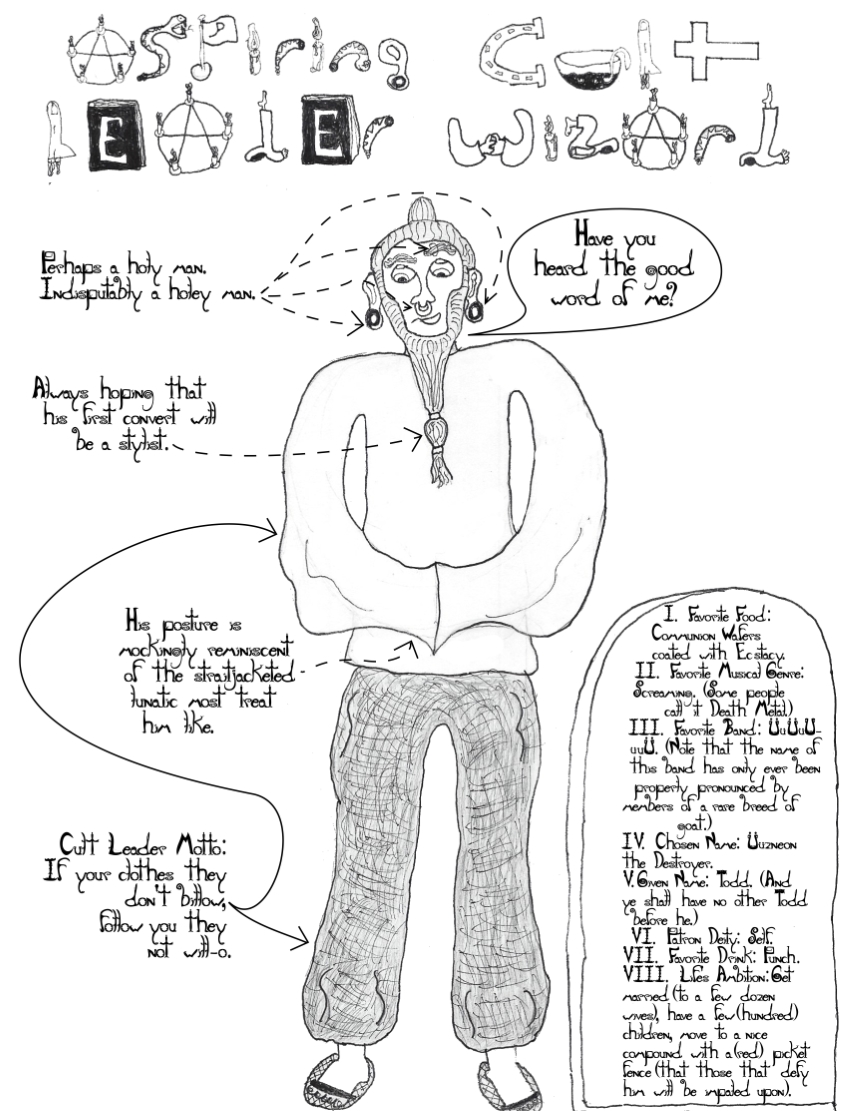 Aspiring Cult
lEAdEr WizArd
Perhaps a holy man.
Indisputably a holey man.
Have you
heard the good
word of me?
Always hoping that
his first convert will
be a stylist.
His posture is
mockingly reminiscent
of the straitjacketed
lunatic most treat
him like.
Cult Leader Motto:
If your clothes they
don't billow,
follow you they
not will-o.
I. Favorite Food:
Communion Wafers
coated with Ecstacy.
II. Favorite Musical Genre:
Screaming. (Some people
call it Death Metal.)
III. Favorite Band: ÜuÜuU-
uuÜ. (Note that the name of
this band has only ever been
properly pronounced by
members of a rare breed of
goat.)
IV. Chosen Name: Üuzneon
the Destroyer.
V.Given Name: Todd. (And
ye shall have no other Todd
before he.)
VI. Patron Deity: Self.
VII. Favorite Drink: Punch.
VIII. Lifes Ambition:Get
married (to a few dozen
wives), have a few (hundred)
children, move to a nice
compound with a(red) picket
fence (that those that defy
him will be impaled upon).